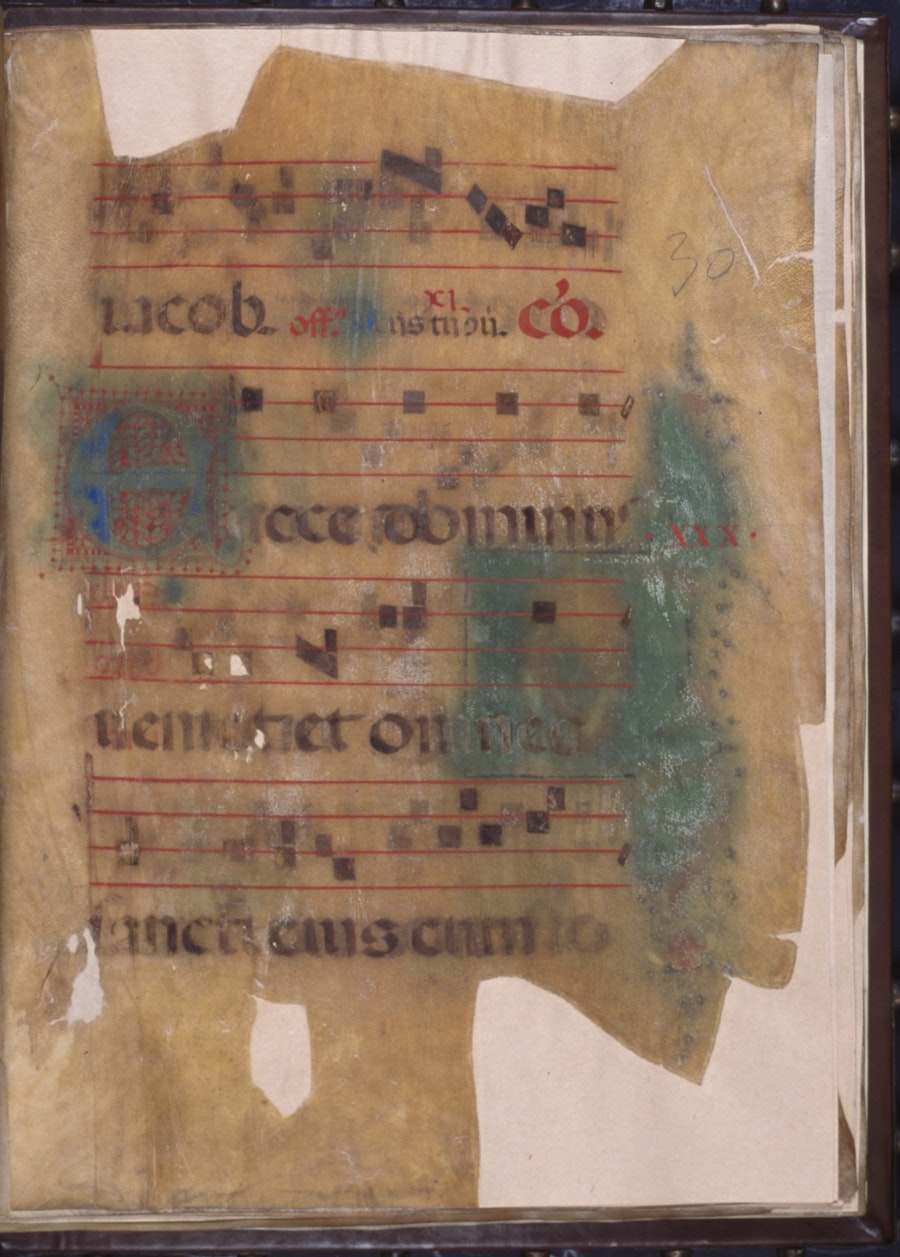 30
iacob. off. XI. cō.
Ecce dominus
· XXX ·
ueniet et omnes
sancti eius cum eo